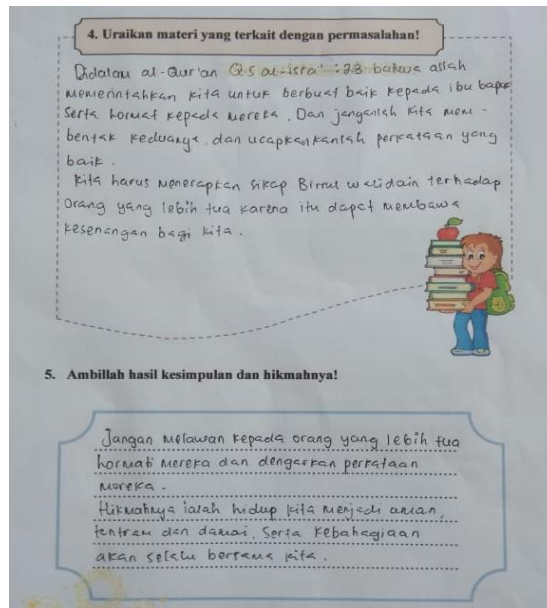 4. Uraikan materi yang terkait dengan permasalahan!
Didalam al-Qur'an Q.S al-isra' : 23 bahwa allah
memerintahkan kita untuk berbuat baik kepada ibu bapak
serta hormat kepada mereka. Dan janganlah kita mem-
bentak keduanya, dan ucapkankanlah perkataan yang
baik.
Kita harus menerapkan sikap Birrul walidain terhadap
orang yang lebih tua karena itu dapat membawa
kesenangan bagi kita.
5. Ambillah hasil kesimpulan dan hikmahnya!
Jangan melawan kepada orang yang lebih tua
hormati mereka dan dengarkan perkataan
mereka.
Hikmahnya ialah hidup kita menjadi aman,
tentram dan damai, serta kebahagiaan
akan selalu bersama kita.